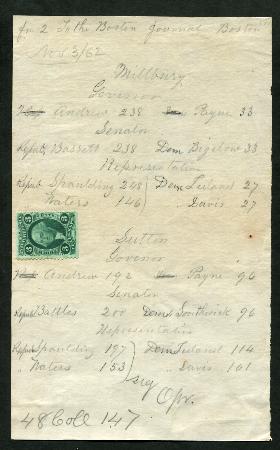 fm 2 To the Boston Journal Boston
Nov 3/62
Millbury
Governor
Andrew 238 Payne 33
Senator
Repub Bassett 238 Dem Bigelow 33
Representative
Repub Spaulding 248 Dem Leland 27
Waters 146 " Davis 27
3 3
Sutton
Govenor
Andrew 192 Payne 96
Senator
Repub Battles 200 Dem Southwick 96
Representative
Repub Spaulding 197 Dem Leland 114
" Waters 153 " Davis 101
sig Opr.
48 Coll 147